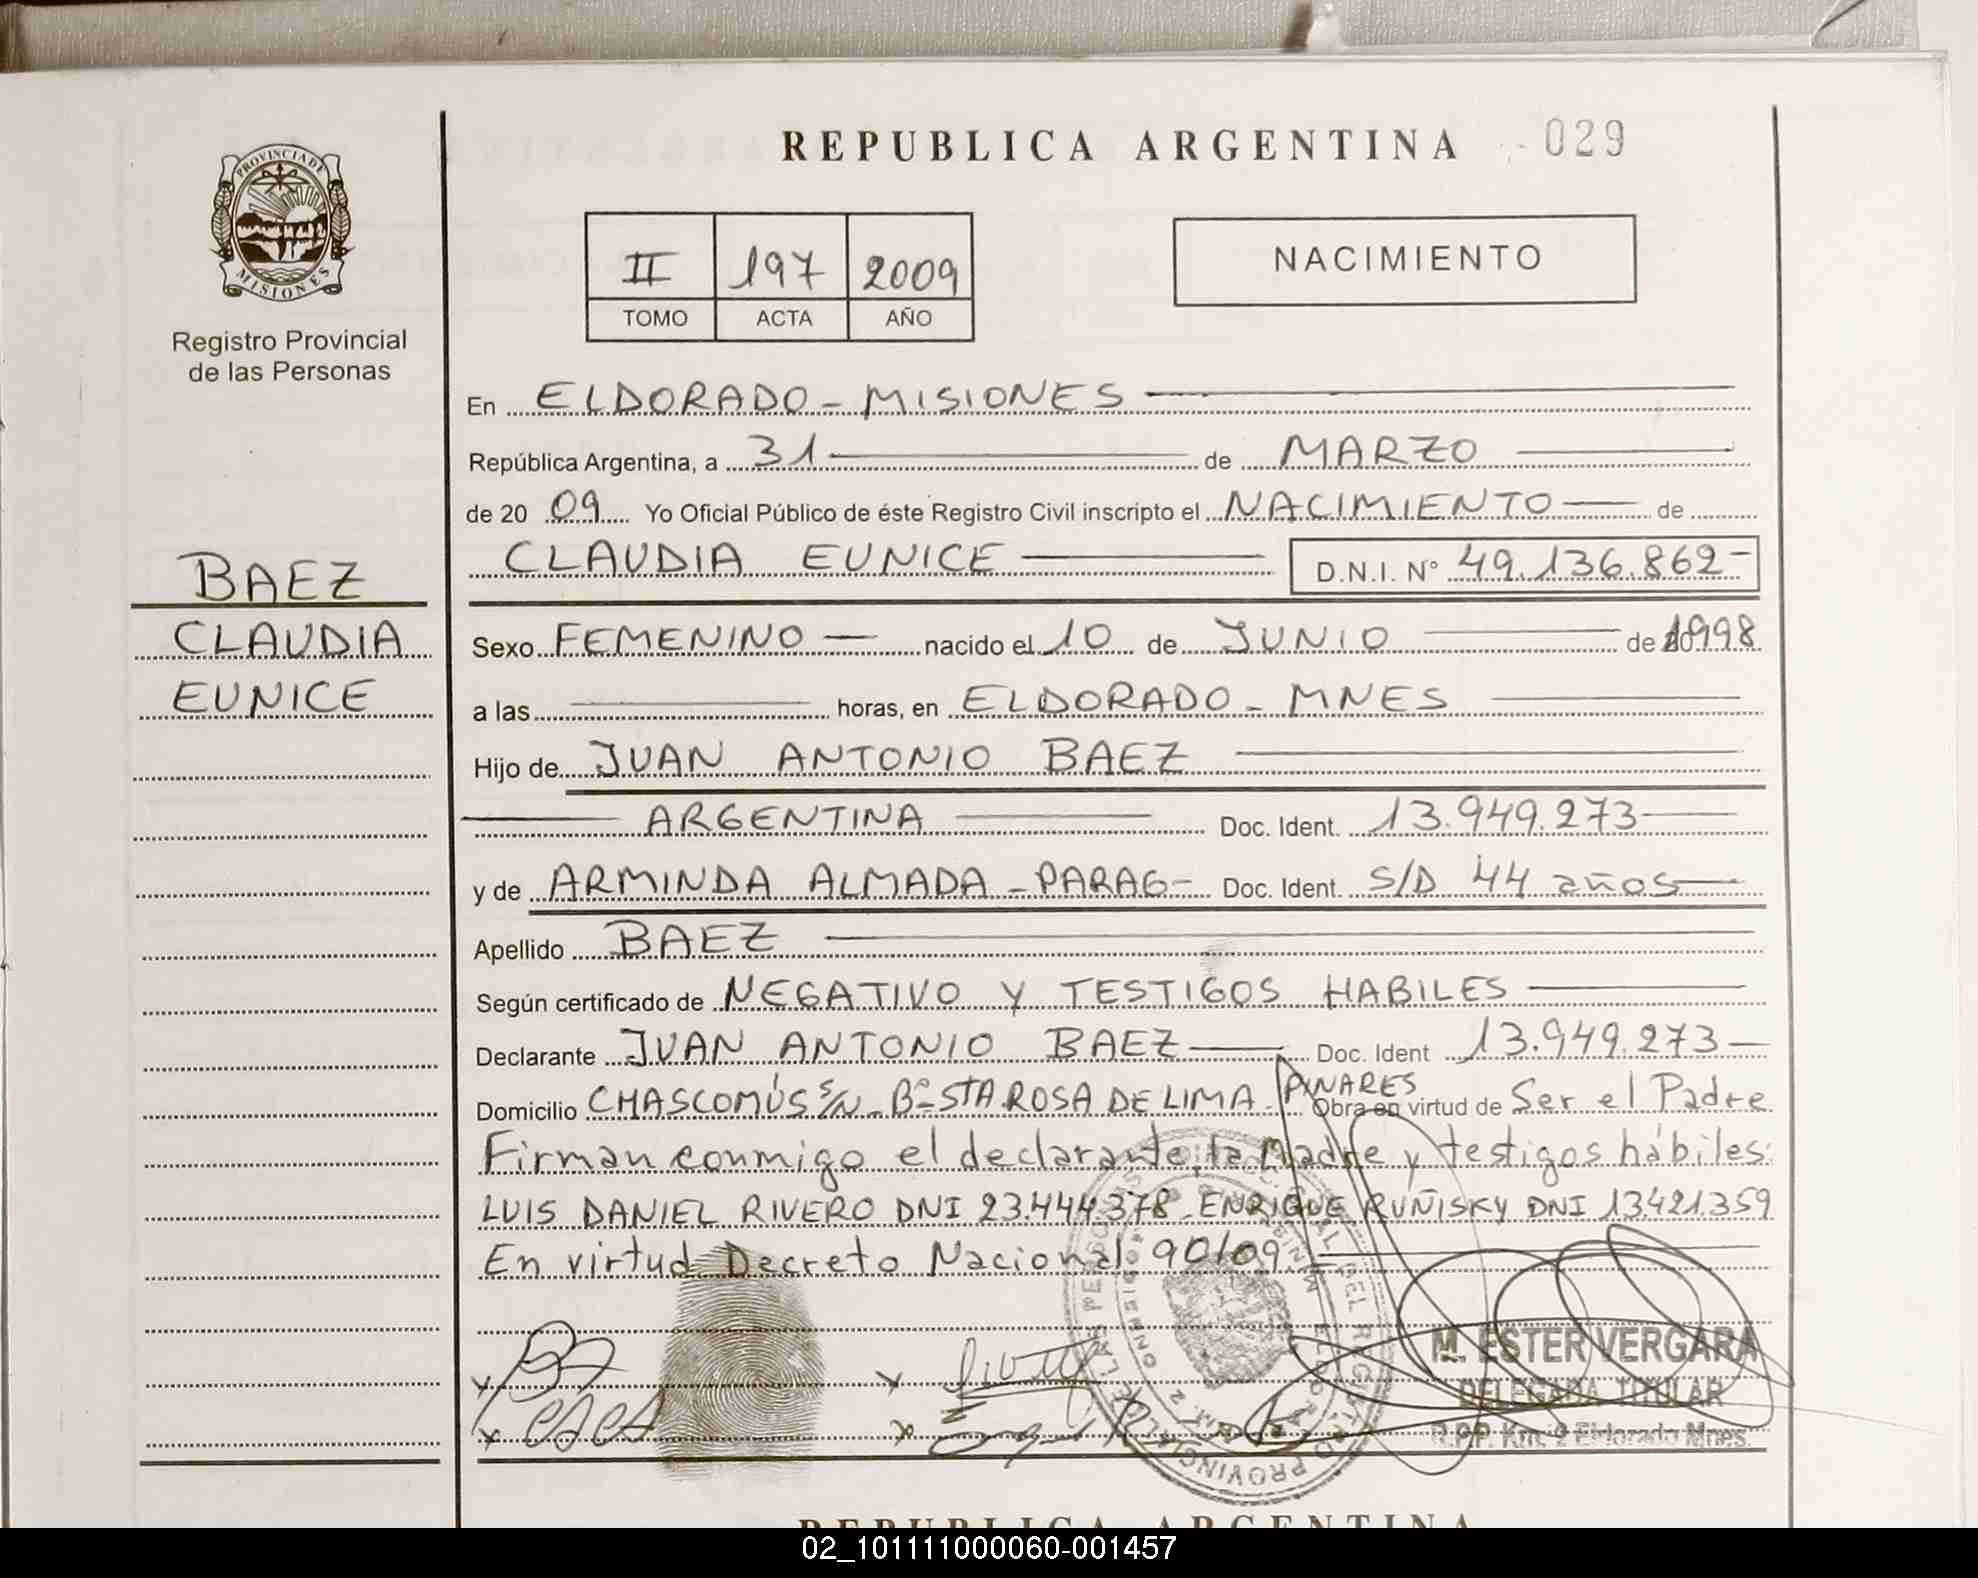 REPUBLICA ARGENTINA 029
PROVINCIA DE
MISIONES
Registro Provincial
de las Personas
II 197 2009
TOMO ACTA AÑO
NACIMIENTO
BAEZ
CLAUDIA
EUNICE
En ELDORADO - MISIONES
República Argentina, a 31 de MARZO
de 20 09 Yo Oficial Público de éste Registro Civil inscripto el NACIMIENTO de
CLAUDIA EUNICE D.N.I. N° 49.136.862-
Sexo FEMENINO nacido el 10 de JUNIO de 1998
a las horas, en ELDORADO - MNES
Hijo de JUAN ANTONIO BAEZ
ARGENTINA Doc. Ident. 13.949.273
y de ARMINDA ALMADA - PARAG- Doc. Ident. S/D 44 años
Apellido BAEZ
Según certificado de NEGATIVO Y TESTIGOS HABILES
Declarante JUAN ANTONIO BAEZ Doc. Ident 13.949.273
Domicilio CHASCOMÚS S/N - B° STA. ROSA DE LIMA - PINARES Obra en virtud de Ser el Padre
Firman conmigo el declarante, la Madre y testigos hábiles:
LUIS DANIEL RIVERO DNI 23.444.378 - ENRIQUE RUÑISKY DNI 13.421.359
En virtud Decreto Nacional 90/09.
M. ESTER VERGARA
DELEGADA TITULAR
R.P.P. Km. 2 Eldorado Mnes.
REPUBLICA ARGENTINA
02_101111000060-001457